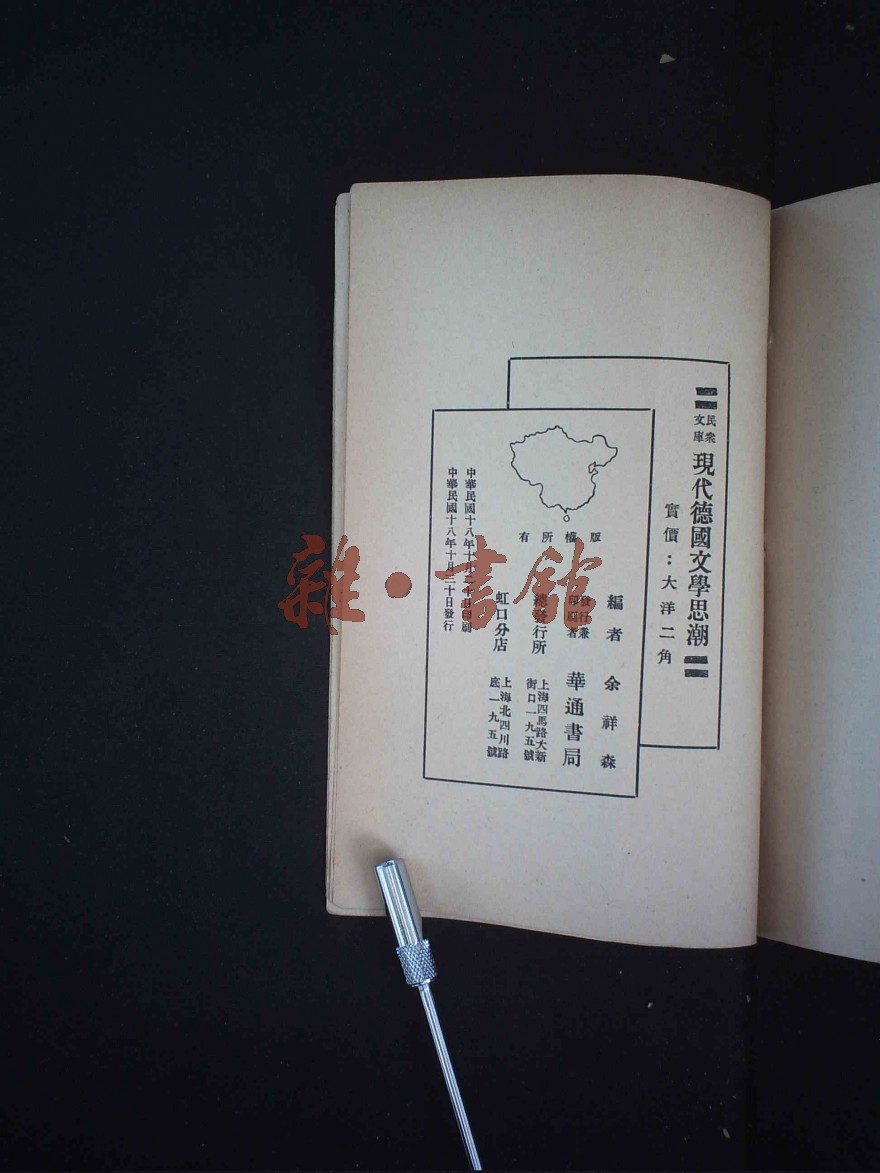 民衆
文庫
現代德國文學思潮
實價：大洋二角
版權所有
編者 余祥森
發行兼
印刷者
華通書局
總發行所
上海四馬路大新
街口一九五號
虹口分店
上海北四川路
底一九五號
中華民國十八年十月二十日印刷
中華民國十八年十月三十日發行
雜·書館